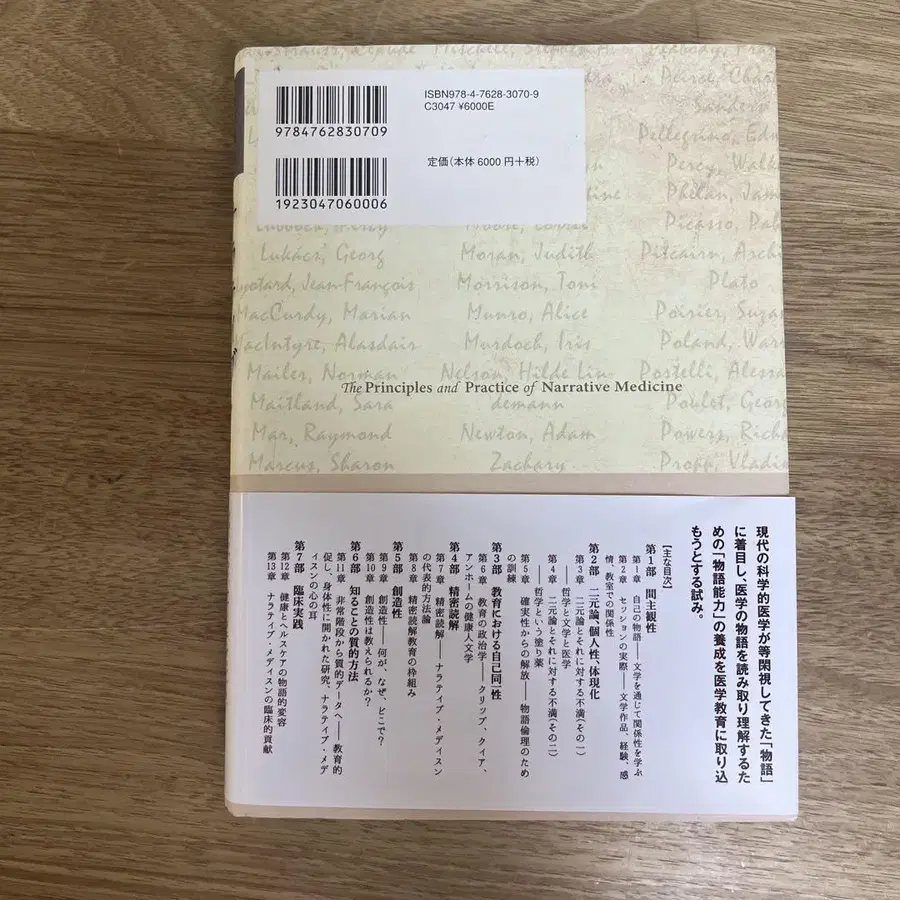 Mitchell, Stephen A.
Peabody,
Peirce,
Sanders
Pellegrino,
Percy,
Philan,
Picasso,
ISBN978-4-7628-3070-9
C3047 ¥6000E
9784762830709
定価(本体 6000 円+税)
1923047060006
Lukács, Georg
Moran, Judith
Pitcairn,
Jean-François
Morrison, Toni
Plato
MacCurdy, Marian
Munro, Alice
Poirier,
Alasdair
Murdoch, Iris
Poland,
Mailer, Norman
Nelson, Hilde Lin-
Postelli,
The Principles and Practice of Narrative Medicine
Maitland, Sara
demann
Poulet,
Mar, Raymond
Newton, Adam
Powers,
Marcus, Sharon
Zachary
Propp,
現代の科学的医学が等閑視してきた「物語」
に着目し、医学の物語を読み取り理解するた
めの「物語能力」の養成を医学教育に取り込
もうとする試み。
【主な目次】
第1部 間主観性
第1章 自己の物語――文学を通じて関係性を学ぶ
第2章 セッションの実際――文学作品、経験、感
情、教室での関係性
第2部 二元論、個人性、体現化
第3章 二元論とそれに対する不満(その一)
――哲学と文学と医学
第4章 二元論とそれに対する不満(その二)
――哲学という塗り薬
第5章 確実性からの解放――物語倫理のため
の訓練
第3部 教育における自己同一性
第6章 教育の政治学――クリップ、クィア、
アンホームの健康人文学
第4部 精密読解
第7章 精密読解――ナラティブ・メディスン
の代表的方法論
第8章 精密読解教育の枠組み
第5部 創造性
第9章 創造性――何が、なぜ、どこで?
第10章 創造性は教えられるか?
第6部 知ることの質的方法
第11章 非常階段から質的データへ――教育的
促し、身体性に開かれた研究、ナラティブ・メデ
ィスンの心の耳
第7部 臨床実践
第12章 健康とヘルスケアの物語的変容
第13章 ナラティブ・メディスンの臨床的貢献